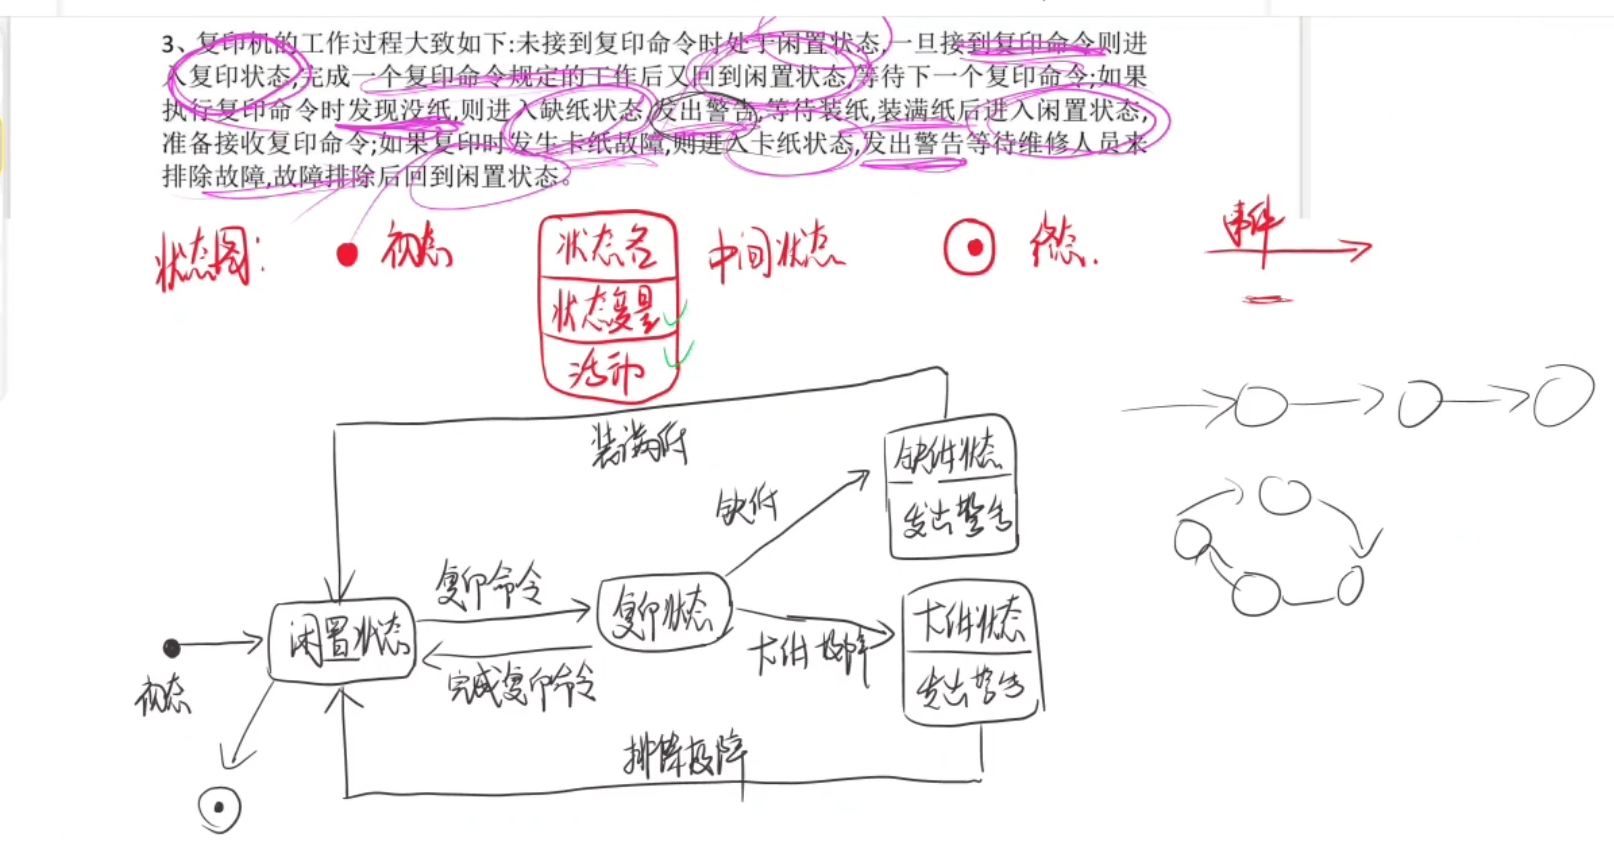 3、复印机的工作过程大致如下:未接到复印命令时处于闲置状态,一旦接到复印命令则进
入复印状态,完成一个复印命令规定的工作后又回到闲置状态,等待下一个复印命令;如果
执行复印命令时发现没纸,则进入缺纸状态,发出警告,等待装纸,装满纸后进入闲置状态,
准备接收复印命令;如果复印时发生卡纸故障,则进入卡纸状态,发出警告等待维修人员来
排除故障,故障排除后回到闲置状态。
状态图: 初态 状态名 中间状态 终态. 事件
状态变量
活动
装满纸
缺纸状态
缺纸
发出警告
复印命令
闲置状态
复印状态
卡纸状态
卡纸故障
初态
完成复印命令
发出警告
排除故障